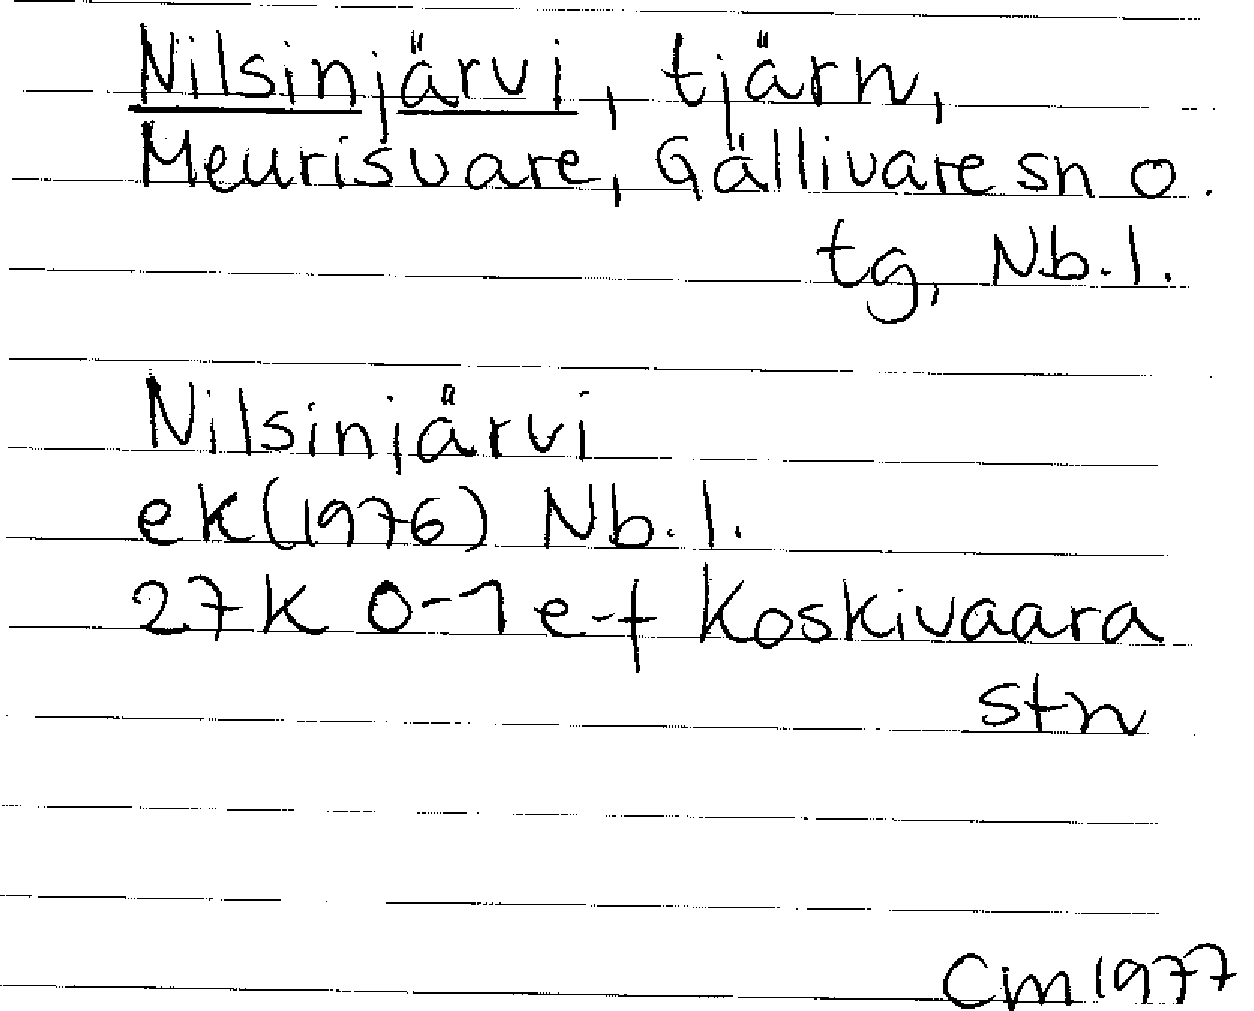 Nilsinjärvi, tjärn,
Meurisvare, Gällivare sn o.
tg, Nb.l.
Nilsinjärvi
ek(1976) Nb.l.
27K 0-1 e-f Koskivaara
stn
Cm 1977